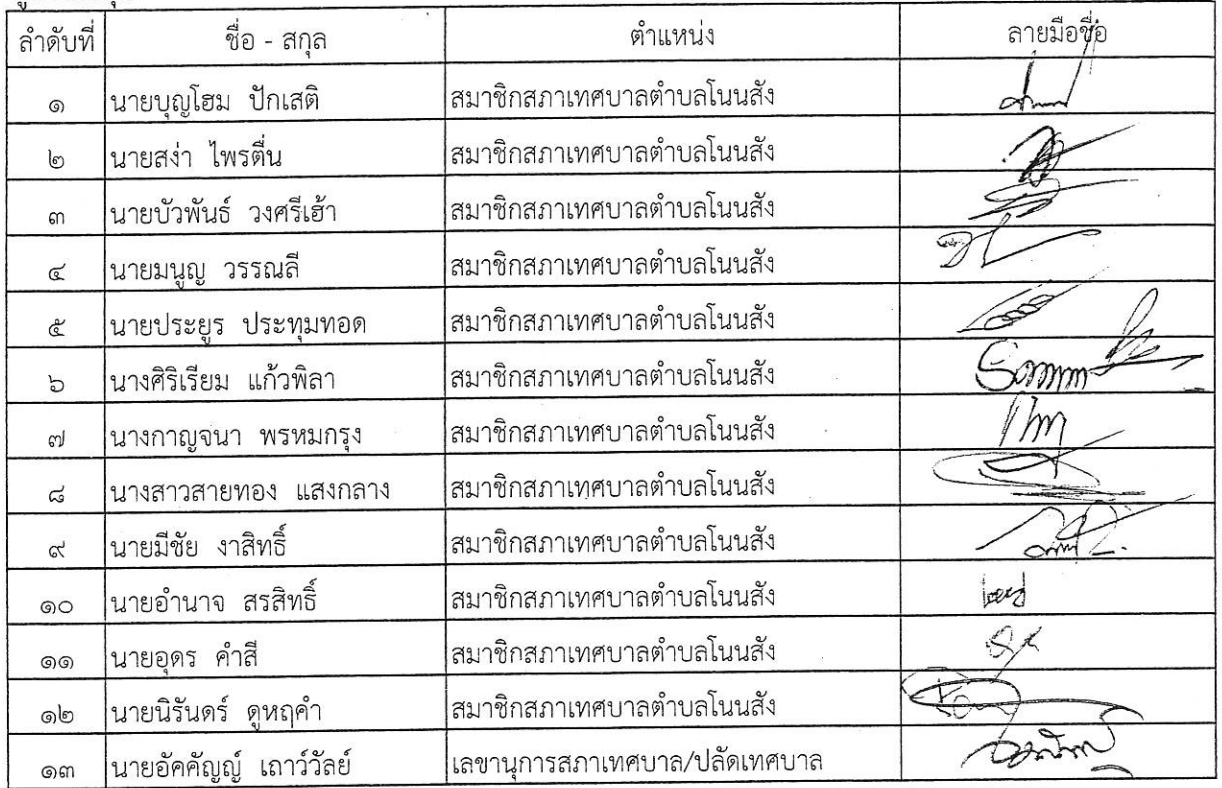 ลำดับที่ ชื่อ - สกุล ตำแหน่ง ลายมือชื่อ
๑ นายบุญโฮม ปักเสติ สมาชิกสภาเทศบาลตำบลโนนสัง
๒ นายสง่า ไพรตื่น สมาชิกสภาเทศบาลตำบลโนนสัง
๓ นายบัวพันธ์ วงศรีเฮ้า สมาชิกสภาเทศบาลตำบลโนนสัง
๔ นายมนูญ วรรณลี สมาชิกสภาเทศบาลตำบลโนนสัง
๕ นายประยูร ประทุมทอด สมาชิกสภาเทศบาลตำบลโนนสัง
๖ นางศิริเรียม แก้วพิลา สมาชิกสภาเทศบาลตำบลโนนสัง
๗ นางกาญจนา พรหมกรุง สมาชิกสภาเทศบาลตำบลโนนสัง
๘ นางสาวสายทอง แสงกลาง สมาชิกสภาเทศบาลตำบลโนนสัง
๙ นายมีชัย งาสิทธิ์ สมาชิกสภาเทศบาลตำบลโนนสัง
๑๐ นายอำนาจ สรสิทธิ์ สมาชิกสภาเทศบาลตำบลโนนสัง
๑๑ นายอุดร คำสี สมาชิกสภาเทศบาลตำบลโนนสัง
๑๒ นายนิรันดร์ ดูหฤคำ สมาชิกสภาเทศบาลตำบลโนนสัง
๑๓ นายอัคคัญญ์ เถาว์วัลย์ เลขานุการสภาเทศบาล/ปลัดเทศบาล